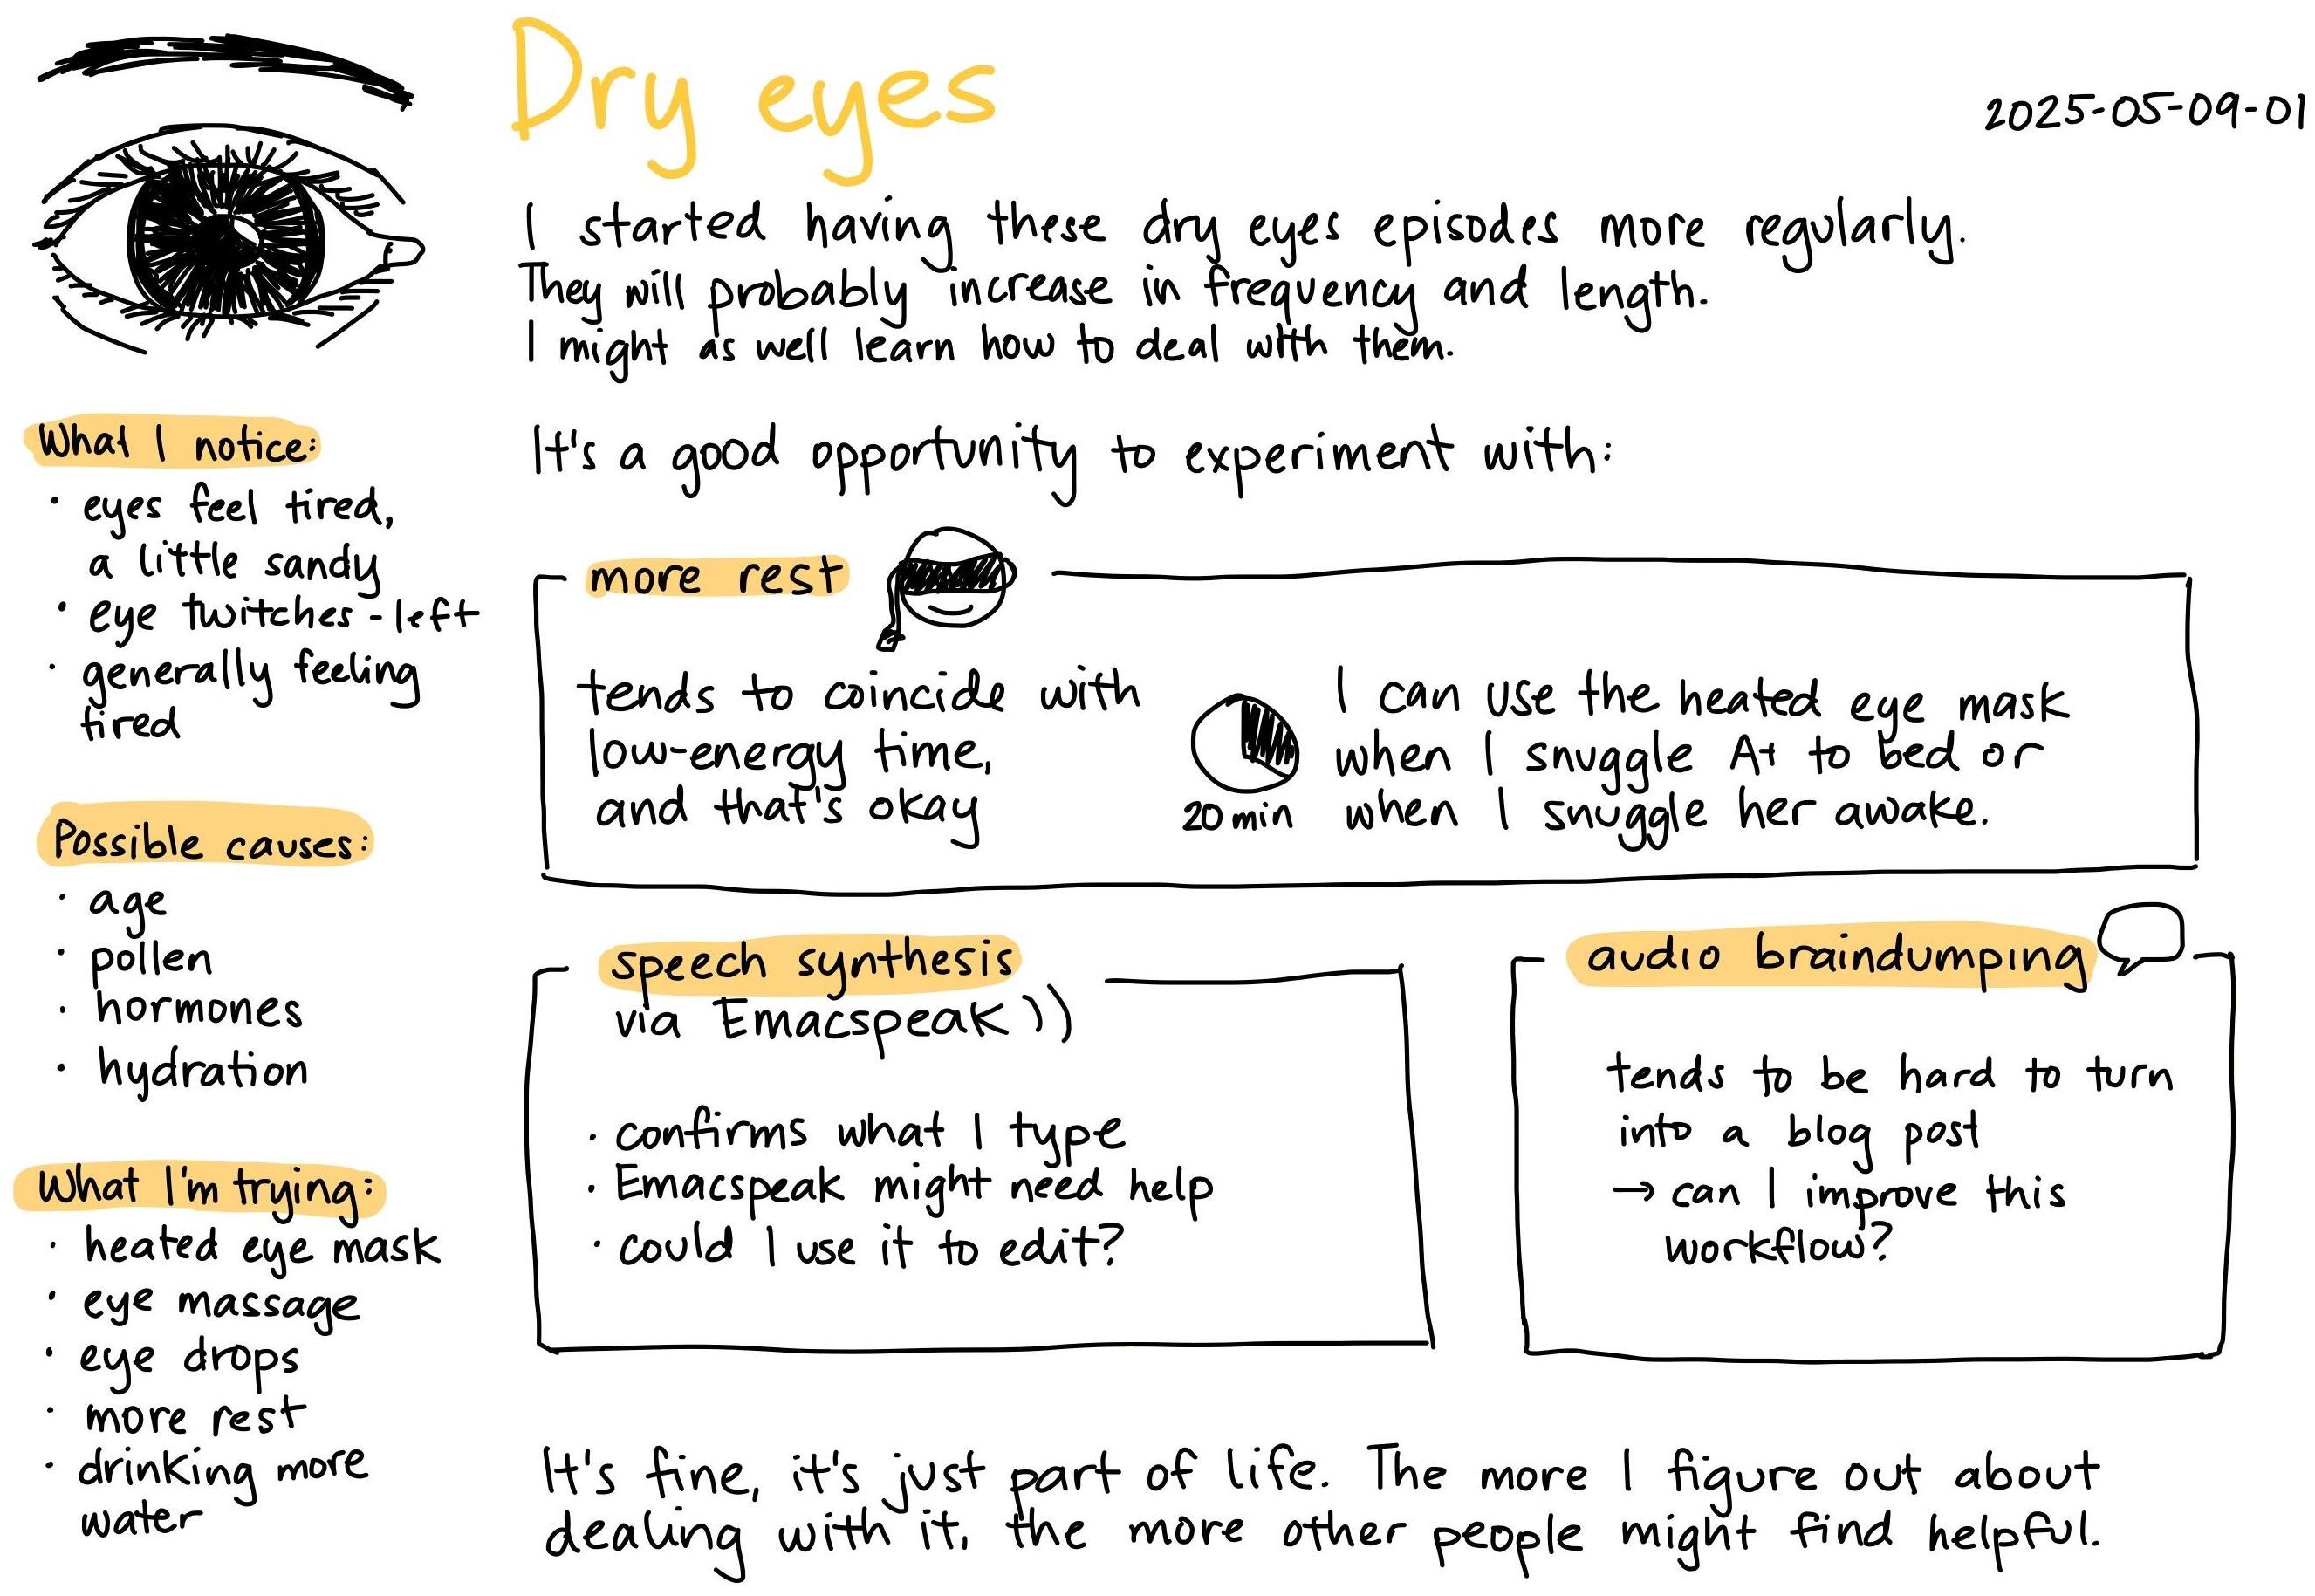 Dry eyes
2025-05-09-01
I started having these dry eyes episodes more regularly.
They will probably increase in frequency and length.
I might as well learn how to deal with them.
It's a good opportunity to experiment with:
What I notice:
• eyes feel tired,
a little sandy
• eye twitches - left
• generally feeling
tired
Possible causes:
• age
• pollen
• hormones
• hydration
What I'm trying:
• heated eye mask
• eye massage
• eye drops
• more rest
• drinking more
water
more rest
tends to coincide with
low-energy time,
and that's okay
20 min
I can use the heated eye mask
when I snuggle A+ to bed or
when I snuggle her awake.
speech synthesis
via Emacspeak
• confirms what I type
• Emacspeak might need help
• could I use it to edit?
audio braindumping
tends to be hard to turn
into a blog post
→ can I improve this
workflow?
It's fine, it's just part of life. The more I figure out about
dealing with it, the more other people might find helpful.